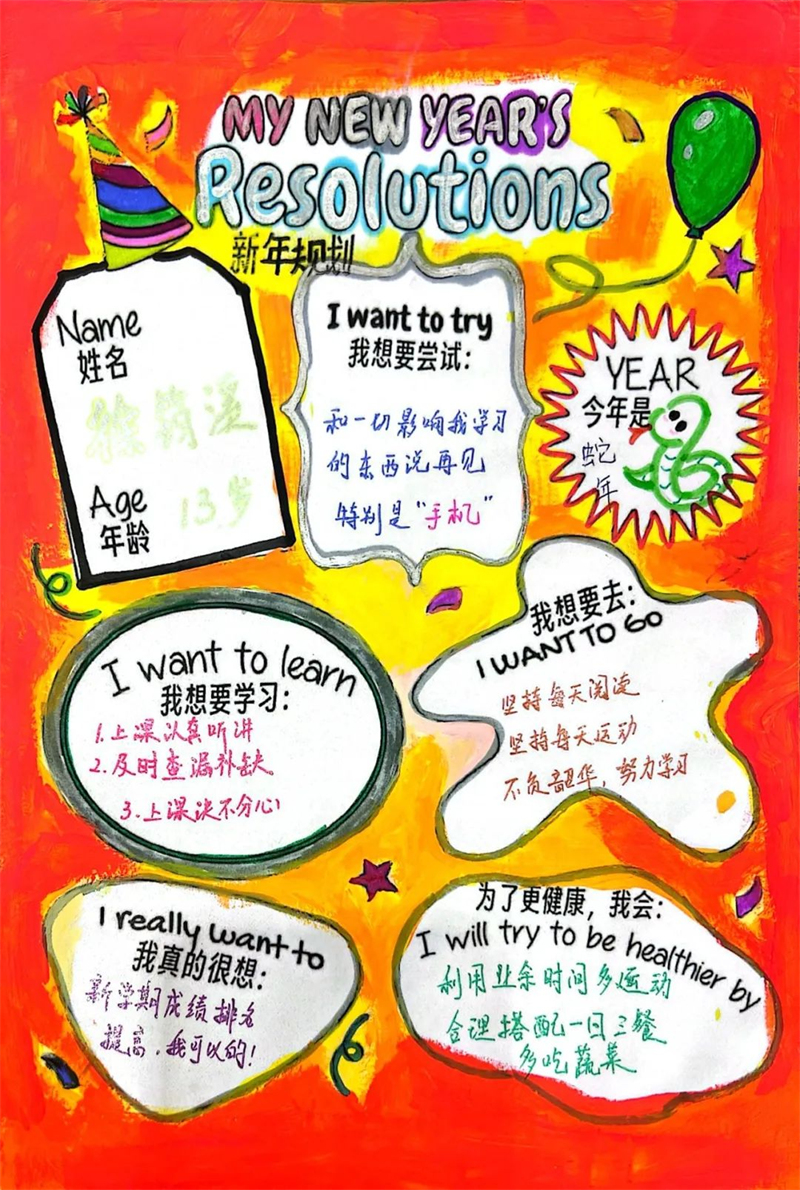 MY NEW YEAR'S
Resolutions
新年规划
Name
姓名
Age
年龄
13岁
I want to try
我想要尝试:
和一切影响我学习
的东西说再见
特别是"手机"
YEAR
今年是
蛇
年
I want to learn
我想要学习:
1.上课认真听讲
2.及时查漏补缺
3.上课决不分心
我想要去:
I WANT TO GO
坚持每天阅读
坚持每天运动
不负韶华,努力学习
I really want to
我真的很想:
新学期成绩排名
提高,我可以的!
为了更健康,我会:
I will try to be healthier by
利用业余时间多运动
合理搭配一日三餐
多吃蔬菜